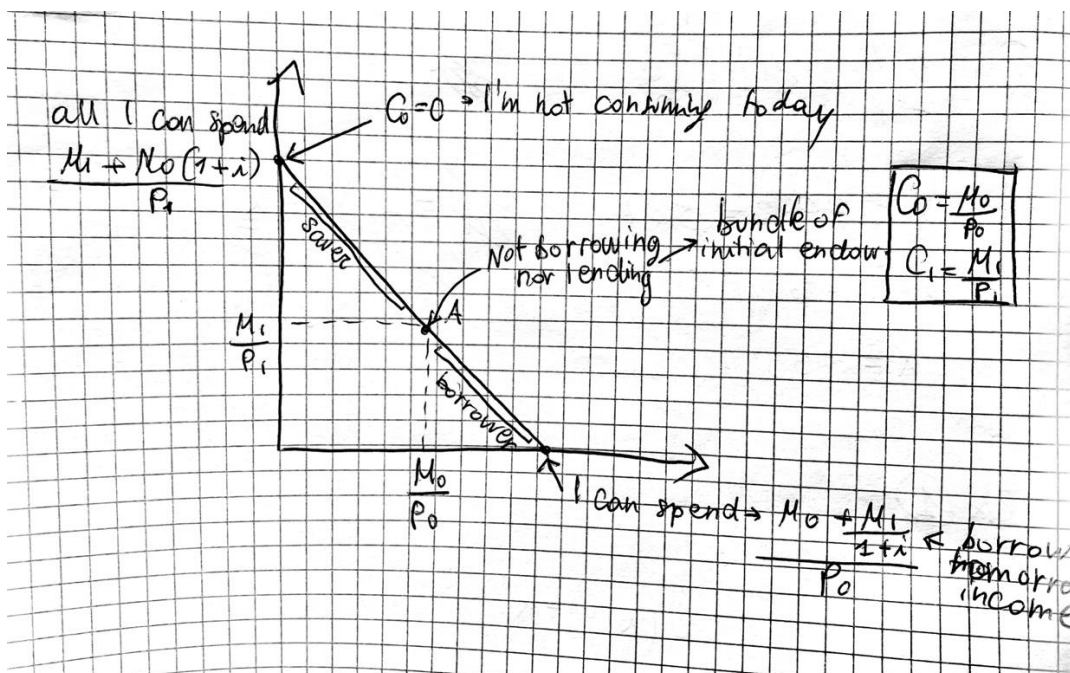 all I can spend
M1 + M0 (1+i)
P1
C0=0 → I'm not consuming today
saver
Not borrowing
nor lending
→ bundle of
initial endow.
C0 = M0
P0
C1 = M1
P1
A
M1
P1
borrower
M0
P0
I can spend → M0 + M1
1+i
P0
← borrow
tomorro
income